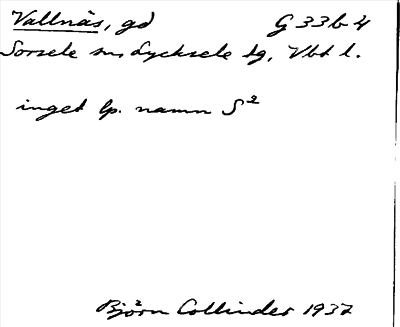 Vallnäs, gd G 33b 4
Sorsele sn, Lycksele tg, Vbt l.
inget lp. namn S²
Björn Collinder 1937